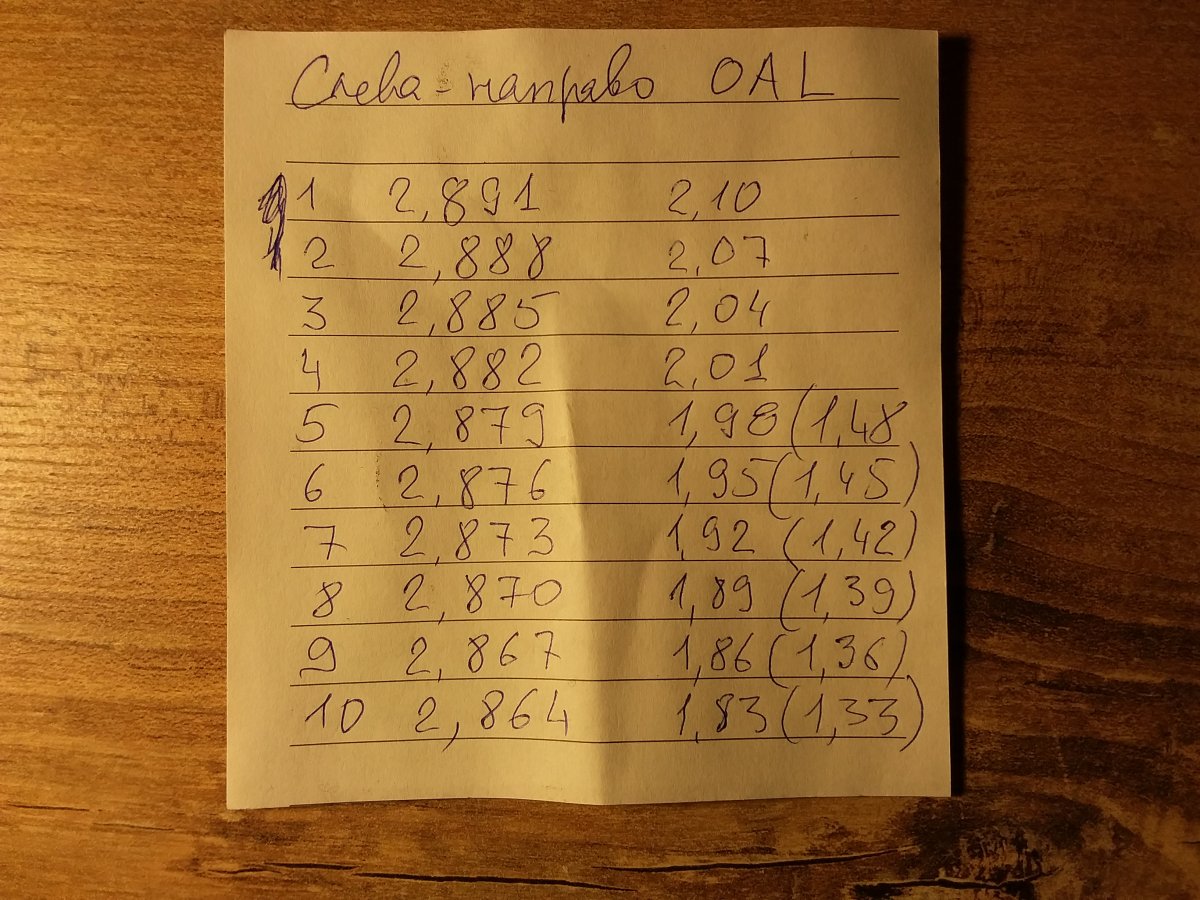 Слева - направо OAL
1 2,891 2,10
2 2,888 2,07
3 2,885 2,04
4 2,882 2,01
5 2,879 1,98 (1,48
6 2,876 1,95 (1,45)
7 2,873 1,92 (1,42)
8 2,870 1,89 (1,39)
9 2,867 1,86 (1,36)
10 2,864 1,83 (1,33)